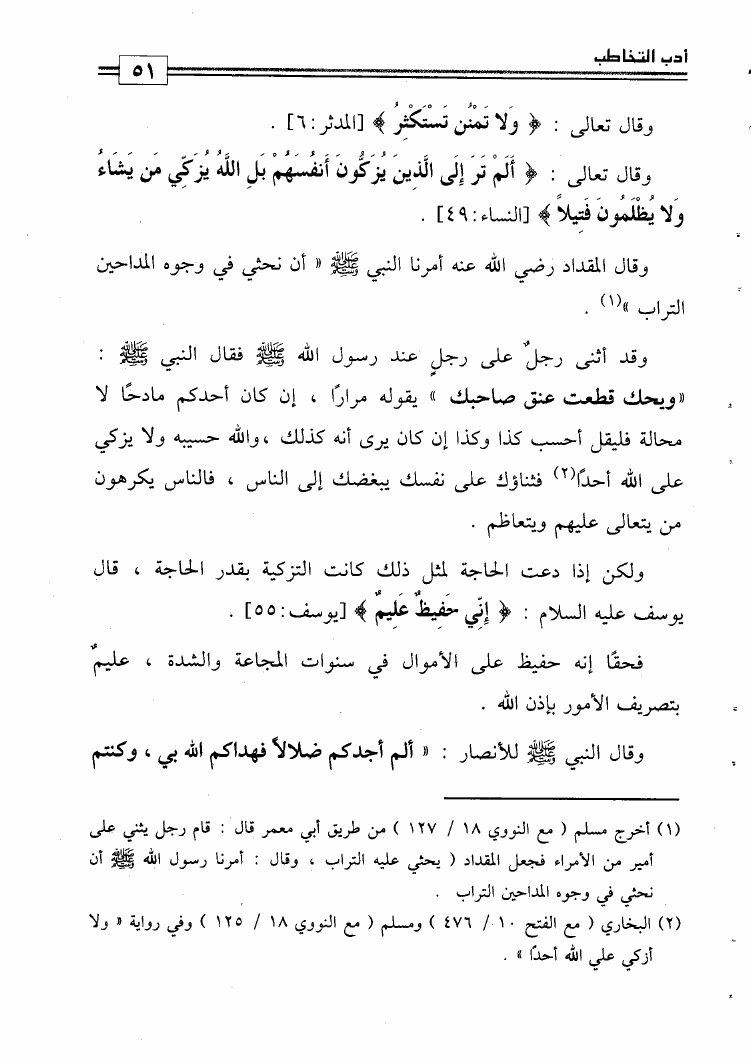 أدب التخاطب
٥١
وقال تعالى : ﴿ وَلا تَمْنُن تَسْتَكْثِرُ ﴾ [المدثر:٦] .
وقال تعالى : ﴿ أَلَمْ تَرَ إِلَى الَّذِينَ يُزَكُّونَ أَنفُسَهُمْ بَلِ اللَّهُ يُزَكِّي مَن يَشَاءُ
وَلا يُظْلَمُونَ فَتِيلاً ﴾ [النساء:٤٩] .
وقال المقداد رضي الله عنه أمرنا النبي ﷺ « أن نحثي في وجوه المداحين
التراب »(١) .
وقد أثنى رجلٌ على رجلٍ عند رسول الله ﷺ فقال النبي ﷺ :
«ويحك قطعت عنق صاحبك » يقوله مرارًا ، إن كان أحدكم مادحًا لا
محالة فليقل أحسب كذا وكذا إن كان يرى أنه كذلك ،والله حسيبه ولا يزكي
على الله أحدًا(٢) فثناؤك على نفسك يبغضك إلى الناس ، فالناس يكرهون
من يتعالى عليهم ويتعاظم .
ولكن إذا دعت الحاجة لمثل ذلك كانت التزكية بقدر الحاجة ، قال
يوسف عليه السلام : ﴿ إِنِّي حَفِيظٌ عَلِيمٌ ﴾ [يوسف:٥٥] .
فحقًا إنه حفيظ على الأموال في سنوات المجاعة والشدة ، عليمٌ
بتصريف الأمور بإذن الله .
وقال النبي ﷺ للأنصار : « ألم أجدكم ضلالاً فهداكم الله بي ، وكنتم
(١) أخرج مسلم ( مع النووي ١٨ / ١٢٧ ) من طريق أبي معمر قال : قام رجل يثني على
أمير من الأمراء فجعل المقداد ( يحثي عليه التراب ، وقال : أمرنا رسول الله ﷺ أن
نحثي في وجوه المداحين التراب .
(٢) البخاري ( مع الفتح ١٠ / ٤٧٦ ) ومسلم ( مع النووي ١٨ / ١٢٥ ) وفي رواية « ولا
أزكي علي الله أحدًا » .